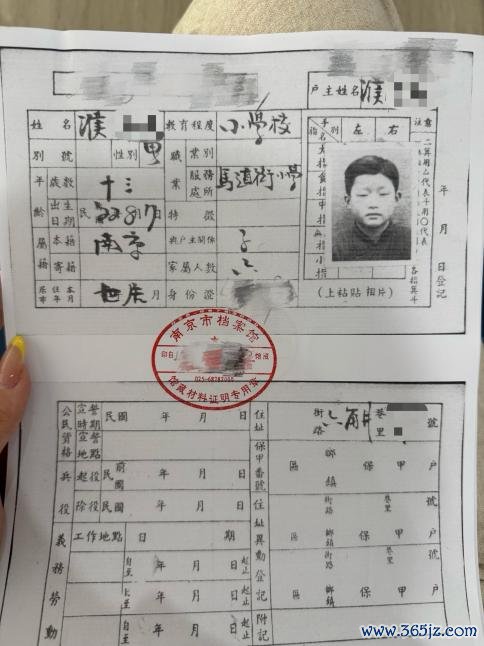 戶主姓名 濮
姓名 濮
教育程度 小學校
手別 左 右
指別
注意
二算用△代表十用〇代表
別號
性別 男
職業別
年齡 歲數 十三
服務處所 馬道街小學
出生日期 民
特徵
籍屬 本籍 南京
與戶主關係 子
寄籍
家屬人數 六
居住本市年月 世居 月
身份證
(上粘貼相片)
年 月 日登記
南京市档案馆
025-68787000
馆藏材料证明专用章
公民資格
宣誓時期 民國 年 月 日
宣誓地點
住址 街路 六角井 巷里 號
保甲番號 區 鄉鎮 保 甲 戶
兵役
起役 民前國 年 月 日
除役 民國 年 月 日
住址異動登記
街路 巷里 號
區 鄉鎮 保 甲 戶
義務勞動
工作地點 日期
自至 年 月 日 起止
街路 巷里 號
區 鄉鎮 保 甲 戶
自至 年 月 日 起止
附記
自至 年 月 日 起止
www.365jz.com